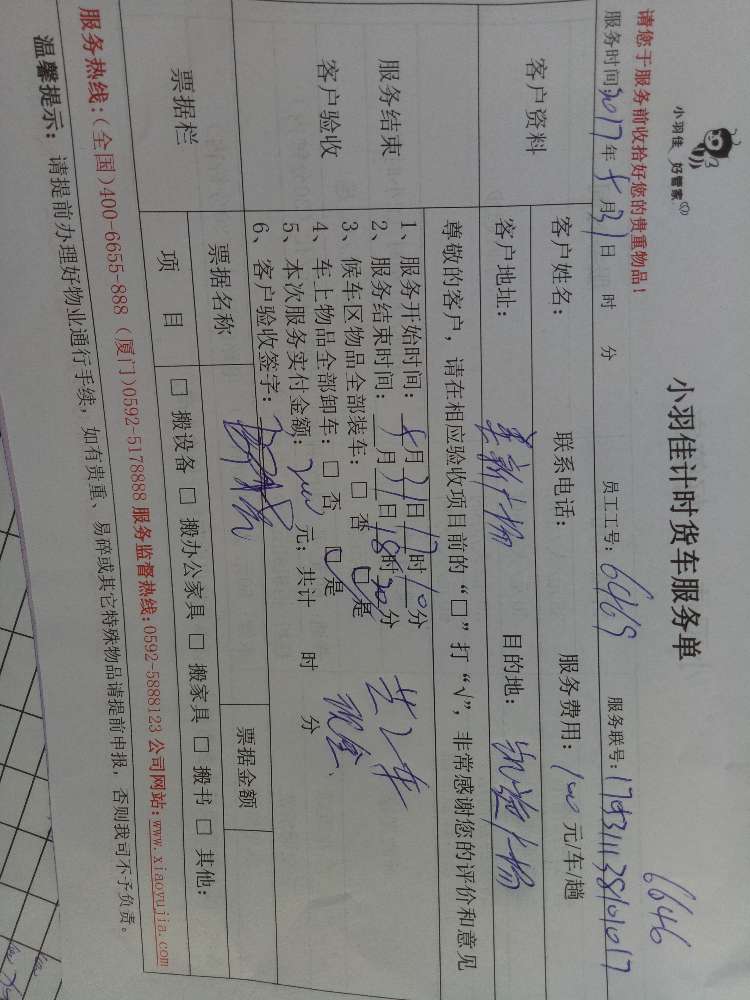 小羽佳 好管家
小羽佳计时货车服务单
6646
请您于服务前收拾好您的贵重物品!
服务时间:2017年8月31日 时 分 员工工号:6469 服务联号:
客户资料
客户姓名: 联系电话: 服务费用:100元/车/趟
客户地址: 目的地:
服务结束
客户验收
尊敬的客户,请在相应验收项目前的“□”打“√”,非常感谢您的评价和意见
1、服务开始时间:8月31日17时10分
2、服务结束时间:8月31日18时30分
3、候车区物品全部装车:□ 否 □是
4、车上物品全部卸车:□ 否 □是
5、本次服务实付金额:200元;共计 时 分
6、客户验收签字:
共2车
现金
票据栏
票据名称 票据金额
项 目 □ 搬设备 □ 搬办公家具 □ 搬家具 □ 搬书 □ 其他:
服务热线:(全国)400-6655-888 (厦门)0592-5178888 服务监督热线:0592-5888123 公司网站:www.xiaoyujia.com
温馨提示: 请提前办理好物业通行手续,如有贵重、易碎或其它特殊物品请提前申报,否则我司不予负责。